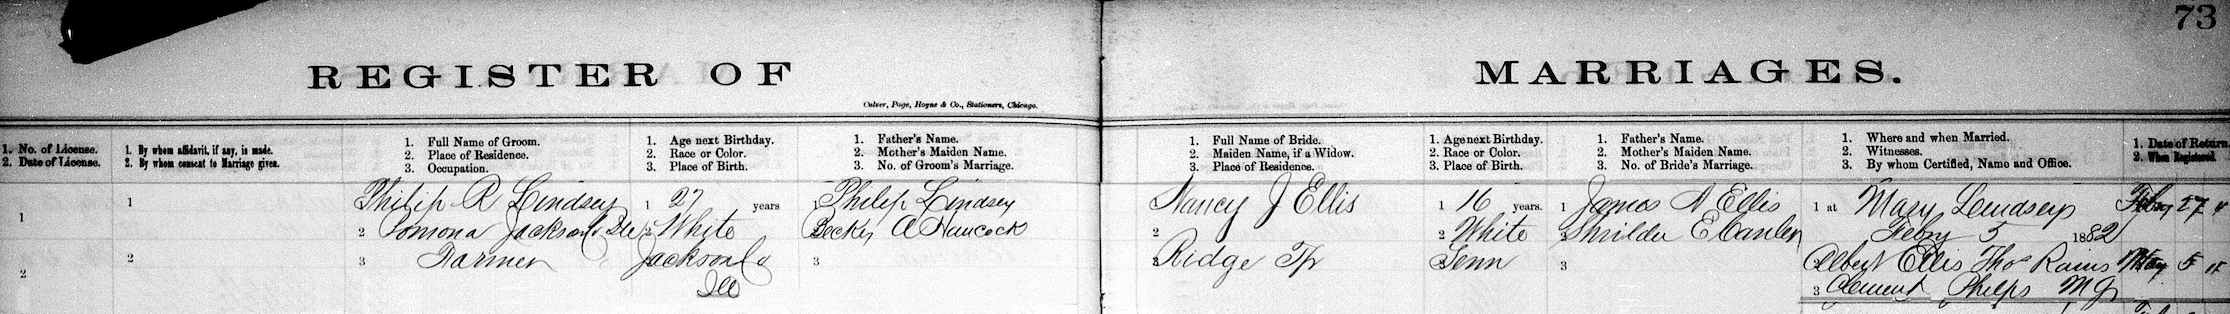 73
REGISTER OF MARRIAGES.
Culver, Page, Hoyne & Co., Stationers, Chicago.
1. No. of License.
2. Date of License.
1. By whom affidavit, if any, is made.
2. By whom consent to Marriage given.
1. Full Name of Groom.
2. Place of Residence.
3. Occupation.
1. Age next Birthday.
2. Race or Color.
3. Place of Birth.
1. Father's Name.
2. Mother's Maiden Name.
3. No. of Groom's Marriage.
1. Full Name of Bride.
2. Maiden Name, if a Widow.
3. Place of Residence.
1. Age next Birthday.
2. Race or Color.
3. Place of Birth.
1. Father's Name.
2. Mother's Maiden Name.
3. No. of Bride's Marriage.
1. Where and when Married.
2. Witnesses.
3. By whom Certified, Name and Office.
1. Date of Return
2. When Registered.
1
2
1
2
Philip R Lindsey
2 Pomona Jackson Co
3 Farmer
1 27 years
2 White
Jackson Co
Ill
1 Philip Lindsey
Becky A Hancock
3
Nancy J Ellis
2
3 Ridge Tp
1 16 years.
2 White
3 Tenn
1 James A Ellis
2 E
3
1 at Mary Lindseys
Feby 5 1882
Albert Ellis Thos Rains
3 Clement Phelps MG
Feby 27
May 5